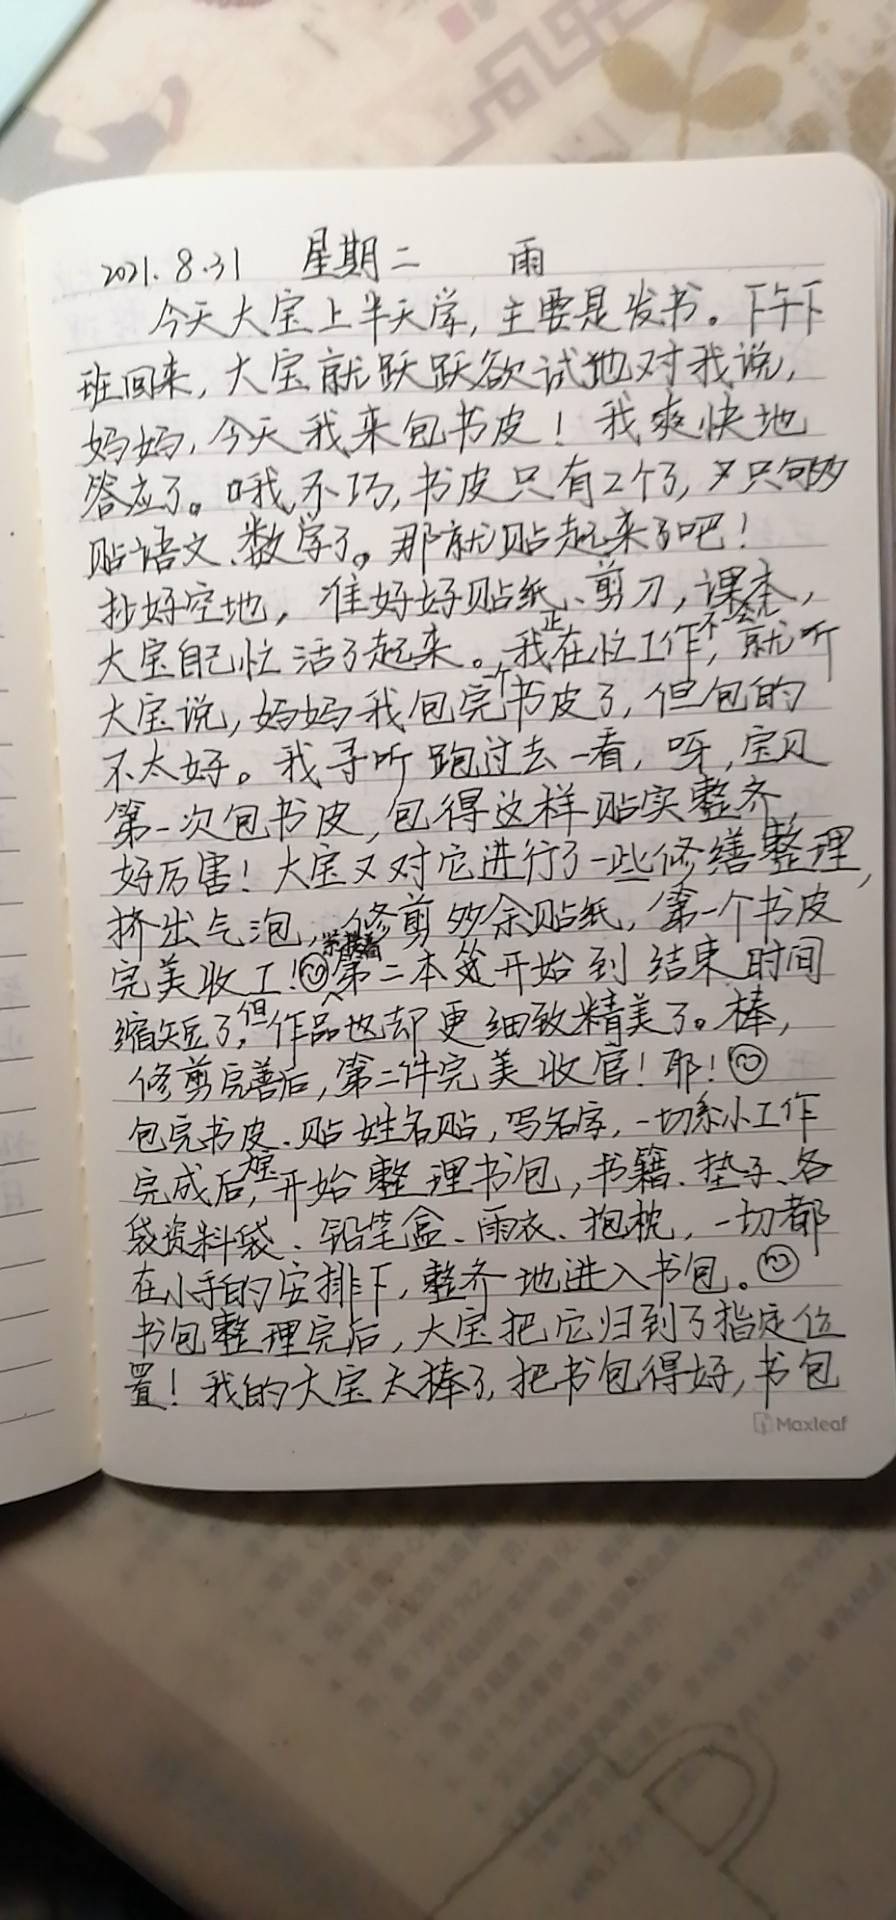 2021.8.31 星期二 雨
今天大宝上半天学,主要是发书。下午下
班回来,大宝就跃跃欲试地对我说,
妈妈,今天我来包书皮!我爽快地
答应了。哦,不巧,书皮只有2个了,只够
贴语文、数学了。那就贴起来了吧!
找好空地,准好好贴纸、剪刀,课本,
大宝自己忙活了起来。我正在忙工作,不一会儿就听
大宝说,妈妈我包完个书皮了,但包的
不太好。我寻听跑过去一看,呀,宝贝
第一次包书皮,包得这样贴实整齐,
好厉害!大宝又对它进行了一些修缮整理,
挤出气泡,修剪多余贴纸,第一个书皮
完美收工!接着第二本从开始到结束时间
缩短了,但作品也却更细致精美了。棒,
修剪完善后,第二件完美收官!耶!
包完书皮、贴姓名贴,写名字,一切系小工作
完成后,大宝开始整理书包,书籍、垫子、各
袋资料袋、铅笔盒、雨衣、抱枕,一切都
在小手的安排下,整齐地进入书包。
书包整理完后,大宝把它归到了指定位
置!我的大宝太棒了,把书包得好,书包
Maxleaf